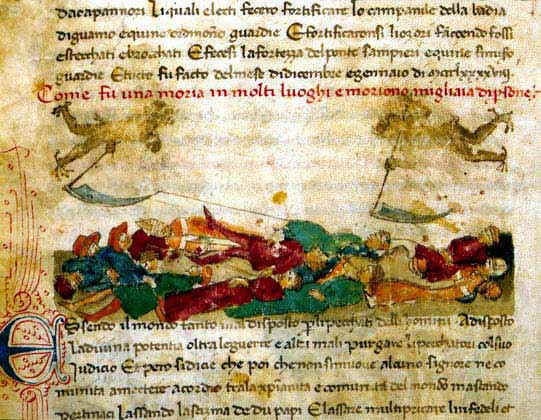 dacapannori Li quali electi fecero fortificare lo campanile della badia
di guamo e quine ordinono guardie E fortificaronsi li borghi faccendo fossi
e steccati e brocchati E fecesi la fortezza del ponte sampieri e quine simiso
guardie E tucto fu facto del mese di dicembre e gennaio di
Come fu una moria in molti luoghi e moriono migliaia di psone
Essendo il mondo tanto mal disposto p li peccati delli homini A disposto
la divina potentia oltra le guerre e altri mali purgare i peccatori col suo
Judicio Et pero si dice che poi che non si muove alcuno signore ne co
munita a mectere acordio tra la xpianita e comunita del mondo ma stando
pertinaci lassando la scisma de du papi E lassare multipricare li infedeli et